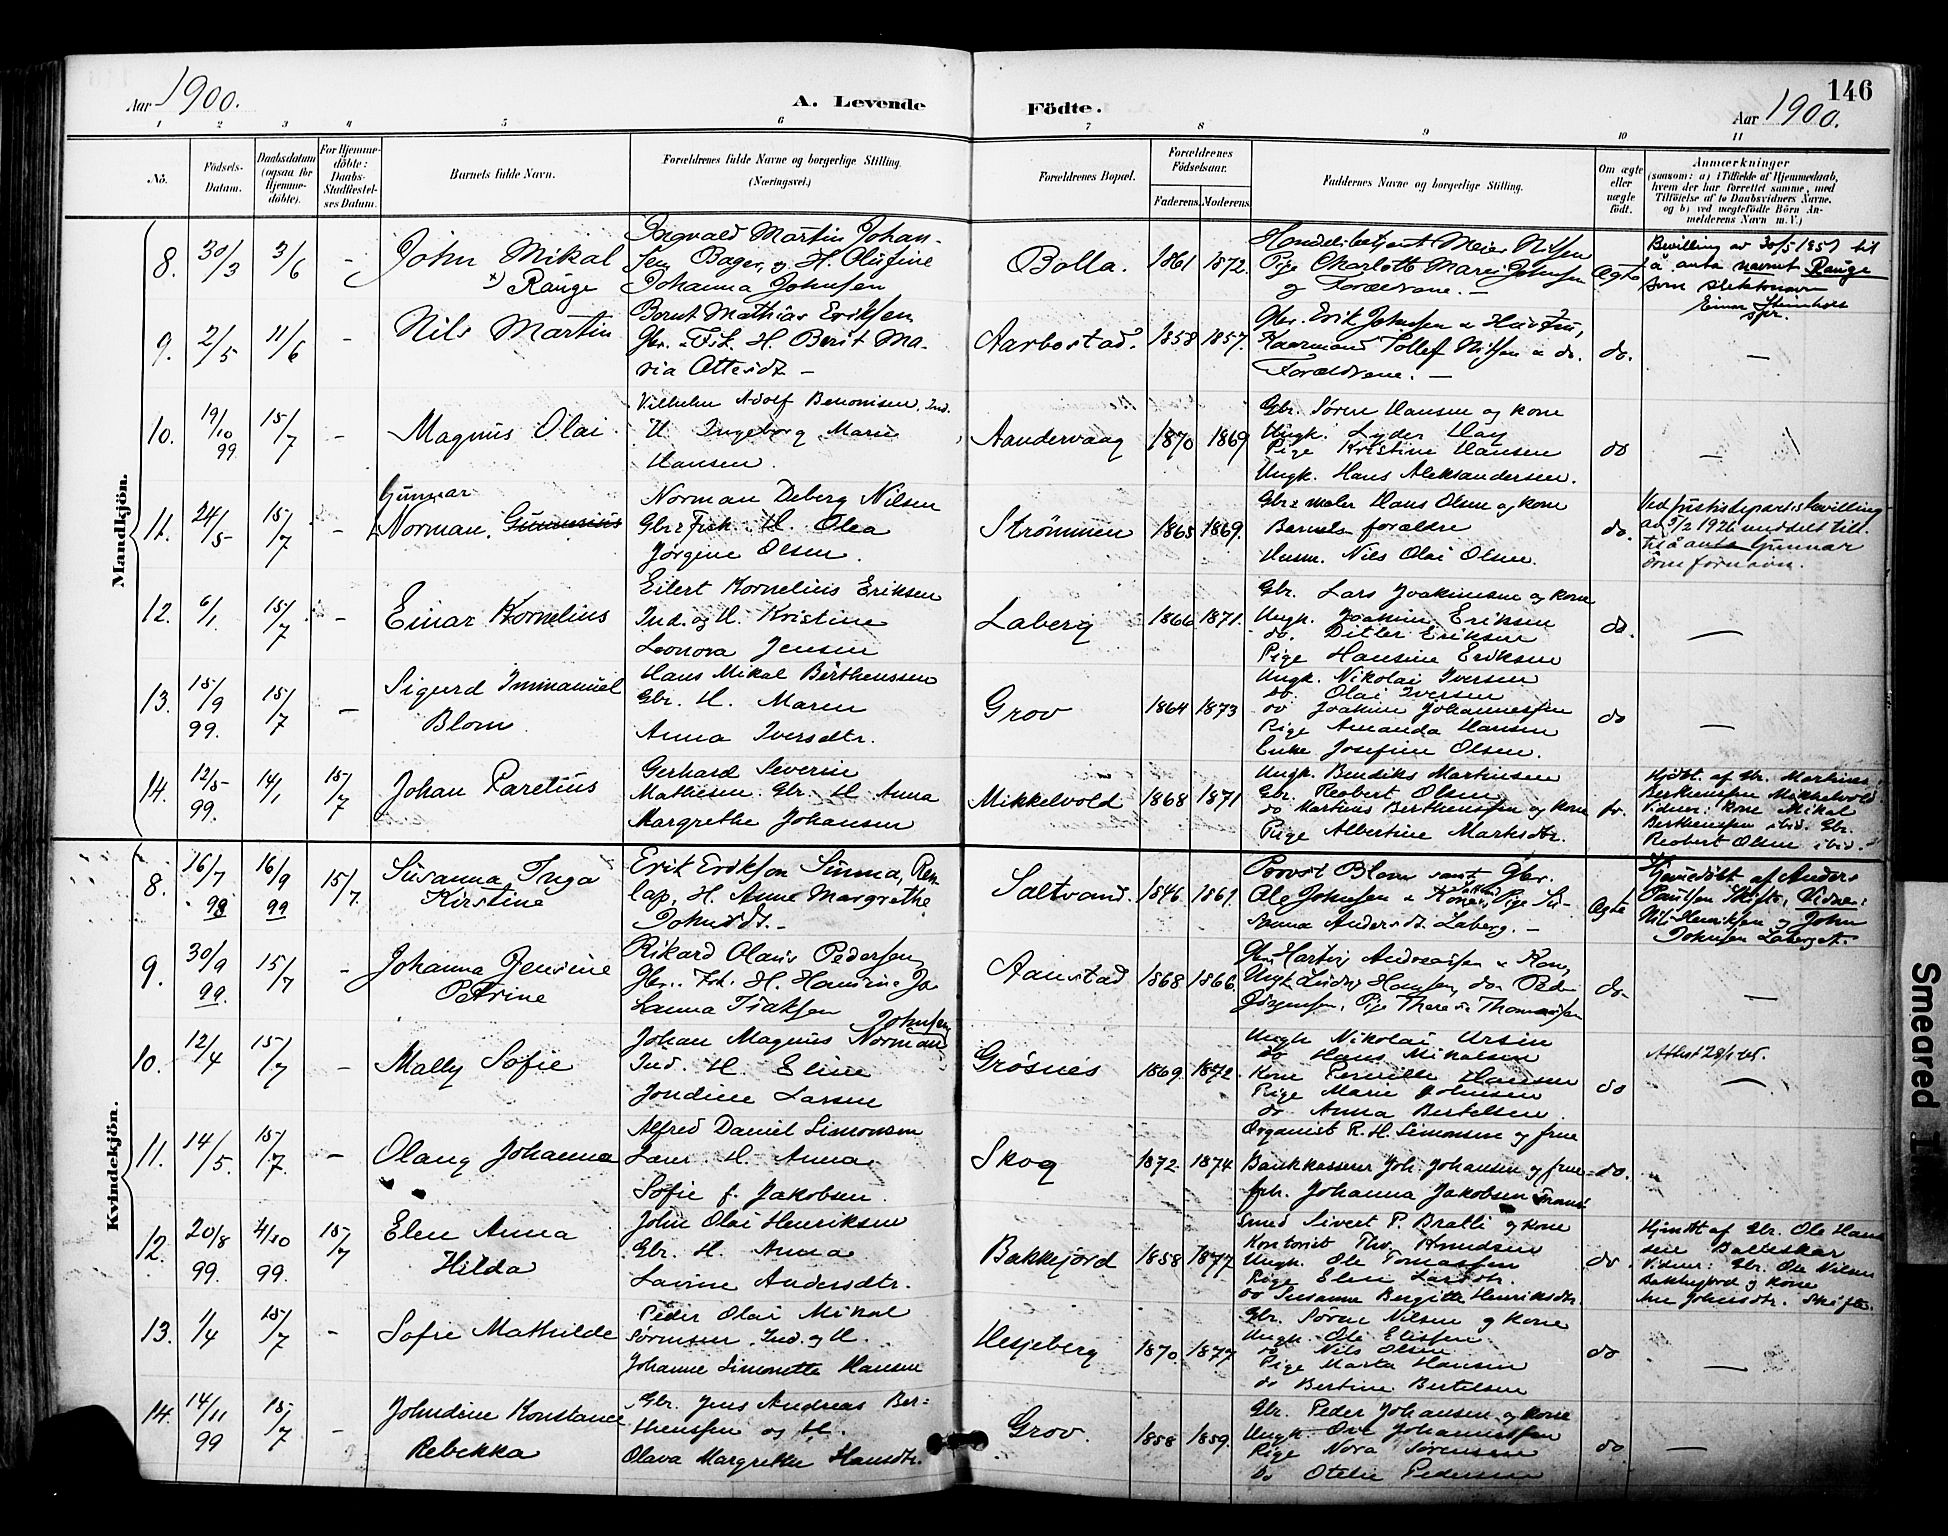 146
Aar 1900.
A. Levende Födte.
Aar 1900.
1 2 3 4 5 6 7 8 9 10 11
No.
Födsels-
Datum.
Daabsdatum
(ogsaa for
Hjemme-
döbte).
For Hjemme-
döbte:
Daabs-
Stadfæstel-
ses Datum.
Barnets fulde Navn.
Forældrenes fulde Navne og borgerlige Stilling.
(Næringsvei.)
Forældrenes Bopæl.
Forældrenes
Födselsaar.
Faderens. Moderens.
Faddernes Navne og borgerlige Stilling.
Om ægte
eller
uægte
født.
Anmærkninger
(saasom: a) i Tilfælde af Hjemmedaab,
hvem der har forrettet samme, med
Tilföielse af to Daabsvidners Navne,
og b) ved uægtefödte Börn An-
melderens Navn m. V.)
Mandkjön.
8. 30/3 3/6 - John Mikal
x) Rånge
Ingvald Martin Johan-
sen Bager, og H. Olufine
Johanna Johnsen
Bolla. 1861 1872.
Handelsbetjent Meier Nilsen
Pige Charlotte Marie Johnsen
og Forældrene. -
Ægte
Bevilling av 30/5 1951 til
å anta navnet Rånge
som slektsnavn
Einar
spr.
9. 2/5 11/6 - Nils Martin
Bernt Mathias Eriksen
Gbr. & Fisk. H. Berit Ma-
ria Ottesdt. -
Aarbostad. 1858 1857.
Gbr. Erik Johnsen & Hustru,
Kaarmand Tollef Nilsen & do.
Forældrene. -
do. -
10. 19/10 99 15/7 - Magnus Olai
Vilhelm Adolf Benonisen, Ind.
H. Ingeborg Marie
Hansen.
Aandervaag 1870 1869
Gbr. Sören Hansen og kone
Ungk. Lyder Hay
Pige Kristine Hansen
Ungk. Hans Aleksandersen.
do -
11. 24/5 15/7 - Gunnar
Norman. Gunnerius
Norman Deberg Nilsen
Gbr & Fisk. H. Olea
Jørgine Olsen.
Strømmen 1865 1869.
Gbr & maler Hans Olsen og kone
Barnets forældre
Husm. Nils Olai Olsen.
do.
Ved justisdepartsbevilling
av 5/2 1926 meddelt till.
til å anta Gunnar
som fornavn.
12. 6/1 15/7 - Einar Kornelius
Eilert Kornelius Eriksen
Ind. og H. Kristine
Leonora Jensen
Laberg 1866 1871.
Gbr. Lars Joakimsen og kone
Ungk. Joakim Eriksen
do. Ditlef Eriksen
Pige Hansine Eriksen
do. -
13. 15/9 99. 15/7 - Sigurd Immanuel
Blom
Hans Mikal Berthenssen
Gbr. H. Maren
Anna Iversdtr.
Grov 1864 1873
Ungk. Nikolai Iversen
do. Olai Iversen
do Joakim Johannessen
Pige Amanda Hansen
Enke Josefine Olsen.
do -
14. 12/5 99. 14/1 15/7 Johan Paretius
Gerhard Severin
Mathisen Gbr. H Anna
Margrethe Johansen
Mikkelvold 1868 1871
Ungk. Bendiks Martinsen
Gbr. Reobert Olsen
do Martins Berthenssen og kone
Pige Albertine Marksdtr.
do.
Hjdbt. af Gbr. Martinus
Berthenssen Mikkelvold
Vidner: kone Mikal
Berthenssen ibid. Gbr.
Reobert Olsen ibid.
Kvindekjön.
8. 16/7 99 16/9 99 15/7. Susanna Inga
Kirstine
Erik Erikson Sinma, Ren-
lap, H. Anne Margrethe
Johnsdt. -
Saltvand. 1846 1861.
Provst Blom samt Gbr.
Ole Johnsen & Kone, Saltvand Pige Su-
sanna Andersdt. Laberg. -
Ægte
Hjemmedöbt af Anders
Paulsen Skifte, Vidner:
Nils Henriksen og John
Johnsen Laberget.
9. 30/9 99. 15/7 - Johanna Jensine
Petrine
Rikard Olaus Pedersen
Gbr. Fsk. H. Hansine Jo
hanna Isaksen
Aanstad 1868 1866.
Gbr. Hartvig Andreassen & Kone,
Ungk. Ludvig Hansen, do Peder
Jørgensen, Pige Theresie Thomassen
do. -
10. 12/4 15/7 - Mally Sofie
Johan Magnus Norman Johnsen
Ind. H. Eline
Jondine Larsen
Grøsnes 1869. 1872.
Ungk Nikolai Ursin
do Hans Mikalsen
Kone Pernille Hansen
Pige Marie Johnsen
do. Anna Bertelsen.
do
Attest 28/1 45.
11. 14/5. 15/7 - Olaug Johanna
Alfred Daniel Simonsen
Lær. H. Anna
Sofie f. Jakobsen.
Skog 1872. 1874
Organist R. H. Simonsen og frue
Bankkasserer Joh. Johansen og frue
frk. Johanna Jakobsen Tromsø
do.
12. 20/8 99. 4/10 99. 15/7 Elen Anna
Hilda
John Olai Henriksen
Gbr. H. Anna
Lavine Andersdtr.
Bakkejord 1858 1877
Smed Sivert P. Bratli og kone
Kontorist Thv. Knudsen
Ungk. Ole Tomassen
Pige Elen Larsdtr.
do Susanne Bergitte Henriksdtr.
do.
Hjmdbt af Gbr. Ole Han
sen Balteskar
Vidner: Gbr. Ole Nilsen
Bakkejord og Kone
Ane Johnsdtr. Skifte.
13. 1/4 15/7 - Sofie Mathilde
Peder Olai Mikal
Sørensen. Ind. og H.
Johanne Simonette Hansen
Hesjeberg 1870. 1877
Gbr. Sørne Nilsen og kone
Ungk. Ole Elissen
do Nils Olsen
Pige Marta Hansen
do Bertine Bertelsen
do -
14. 14/11 99 15/7 - Johndine Konstance
Rebekka
Gbr. Jens Andreas Ber-
thenssen og H.
Olava Margrethe Hansdtr.
Grov. 1858 1859.
Gbr. Peder Johansen og kone
Ungk. Ove Johannessen
Pige Nora Sørensen
Do Otelie Pedersen
do -
Smeared